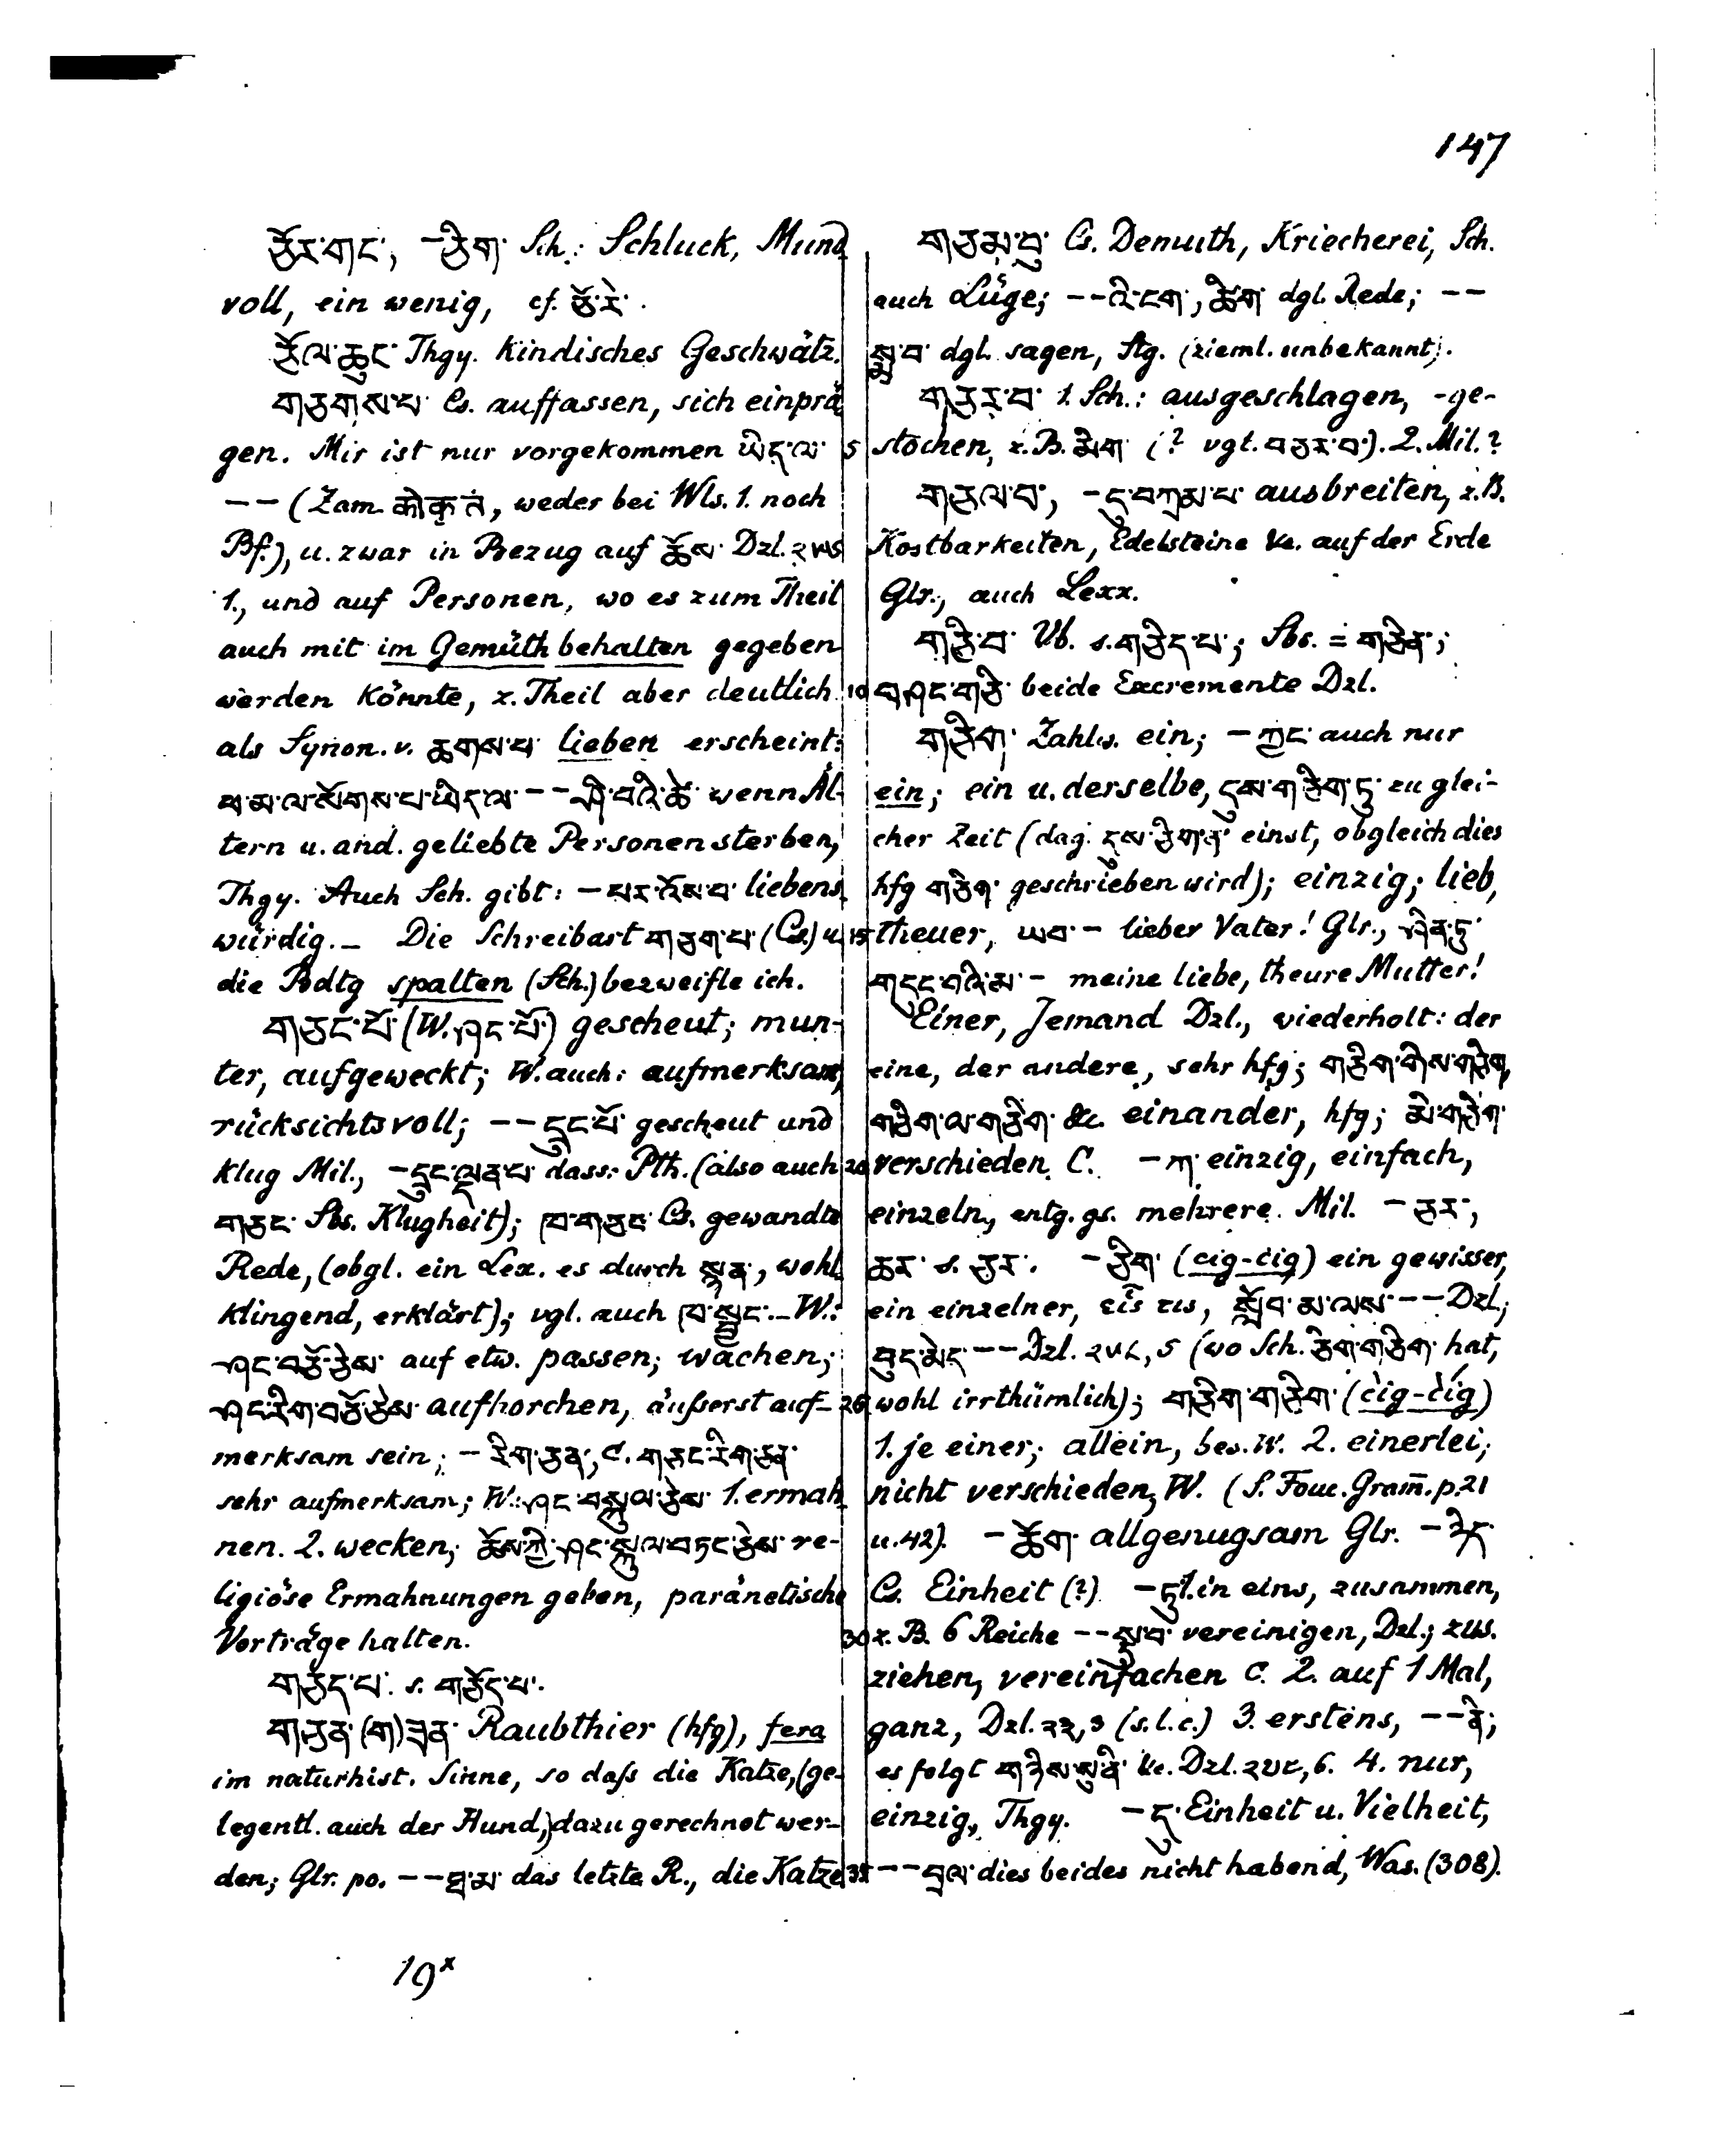 147
ཅོར་གང་, –ཅིག་ Sch.: Schluck, Mund
voll, ein wenig, cf. ཅོ་རེ་.
ཅོལ་ཆུང་ Thgy. kindisches Geschwätz.
གཅགས་པ་ Cs. auffassen, sich einprä
gen. Mir ist nur vorgekommen ཡིད་ལ་
–– (Zam. , weder bei Wls. 1. noch
Bf.), u. zwar in Bezug auf ཆོས་ Dzl.
1., und auf Personen, wo es zum Theil
auch mit im Gemüth behalten gegeben
werden könnte, z. Theil aber deutlich
als Synon. v. ཆགས་པ་ lieben erscheint:
ཕ་མ་ལ་སོགས་པ་ཡིད་ལ་––ཤི་བའི་ཚེ་ wenn Äl-
tern u. and. geliebte Personen sterben,
Thgy. Auch Sch. gibt: –པར་འོས་པ་ liebens
würdig. – Die Schreibart གཅག་པ་ (Cs.) u.
die Bdtg spalten (Sch.) bezweifle ich.
གཅང་པོ་ (W. ཤང་པོ་) gescheut; mun-
ter, aufgeweckt; W. auch: aufmerksam,
rücksichtsvoll; ––དྲུང་པོ་ gescheut und
klug Mil., –དྲུང་ལྡན་པ་ dass. Pth. (also auch
གཅང་ Sbs. Klugheit); ཁ་གཅང་ Cs. gewandte
Rede, (obgl. ein Lex. es durch སྙན་, wohl
klingend, erklärt); vgl. auch ཁ་སྦྱང་. – W.:
ཤང་བཅོ་ཅེས་ auf etw. passen; wachen;
ཤང་རིག་བཅོ་ཅེས་ aufhorchen, äußerst auf-
merksam sein; –རིག་ཅན་, C. གཅང་རིག་ཅན་
sehr aufmerksam; W.: ཤང་བསྐུལ་ཅེས་ 1. ermah
nen. 2. wecken; ཆོས་ཀྱི་ཤང་སྐུལ་བཏང་ཅེས་ re-
ligiöse Ermahnungen geben, paränetische
Vorträge halten.
གཅད་པ་ s. གཅོད་པ་.
གཅན་(ག)ཟན་ Raubthier (hfg), fera
im naturhist. Sinne, so daß die Katze, (ge-
legentl. auch der Hund,) dazu gerechnet wer-
den; Glr. po. ––ཐ་མ་ das letzte R., die Katze
གཅམ་བུ་ Cs. Demuth, Kriecherei, Sch.
auch Lüge; ––འི་ངག་, ཚིག་ dgl. Rede; ––
སྨྲ་བ་ dgl. sagen, Stg. (zieml. unbekannt).
གཅར་བ་ 1. Sch.: ausgeschlagen, -ge-
5 stochen, z. B. མིག་ (? vgl. བཅར་བ་). 2. Mil.?
གཅལ་བ་, –དུ་བཀྲམ་པ་ ausbreiten, z. B.
Kostbarkeiten, Edelsteine &c. auf der Erde
Glr., auch Lexx.
གཅི་བ་ Vb. s. གཅིད་པ་; Sbs. = གཅིན་;
10 བཤང་གཅི་ beide Excremente Dzl.
གཅིག་ Zahlw. ein; –ཀྱང་ auch nur
ein; ein u. derselbe, དུས་གཅིག་ཏུ་ zu glei-
cher Zeit (dag. དུས་ཅིག་ན་ einst, obgleich dies
hfg གཅིག་ geschrieben wird); einzig; lieb,
15 theuer, ཡབ་– lieber Vater! Glr., ཤིན་ཏུ་
གདུང་བའི་མ་– meine liebe, theure Mutter!
Einer, Jemand Dzl., wiederholt: der
eine, der andere, sehr hfg; གཅིག་གིས་གཅིག,
གཅིག་ལ་གཅིག་ &c. einander, hfg; མི་གཅིག་
20 verschieden C. –ཀ་ einzig, einfach,
einzeln, entg. gs. mehrere. Mil. –ཅར་,
ཆར་ s. ཅར་. –ཅིག་ (cig-cig) ein gewisser,
ein einzelner, εἷς τις, སློབ་མ་ལས་–– Dzl.;
བུད་མེད་–– Dzl. ༢༥༨, 5 (wo Sch. ཅིག་གཅིག་ hat,
25 wohl irrthümlich); གཅིག་གཅིག་ (cig-cig)
1. je einer; allein, bes. W. 2. einerlei;
nicht verschieden, W. (S. Fouc. Gram̄. p. 21
u. 42). –ཆོག་ allgenugsam Glr. –ཉིད་
Cs. Einheit (?) –ཏུ་ 1. in eins, zusammen,
30 z. B. 6 Reiche ––སྡུ་བ་ vereinigen, Dzl.; zus.
ziehen, vereinfachen C. 2. auf 1 Mal,
ganz, Dzl. ༢༢, 3 (s. l. c.) 3. erstens, ––ནི་;
es folgt གཉིས་སུ་ནི་ &c. Dzl. , 6. 4. nur,
einzig, Thgy. –དུ་ Einheit u. Vielheit,
35 ––བྲལ་ dies beides nicht habend, Was. (308).
19ˣ